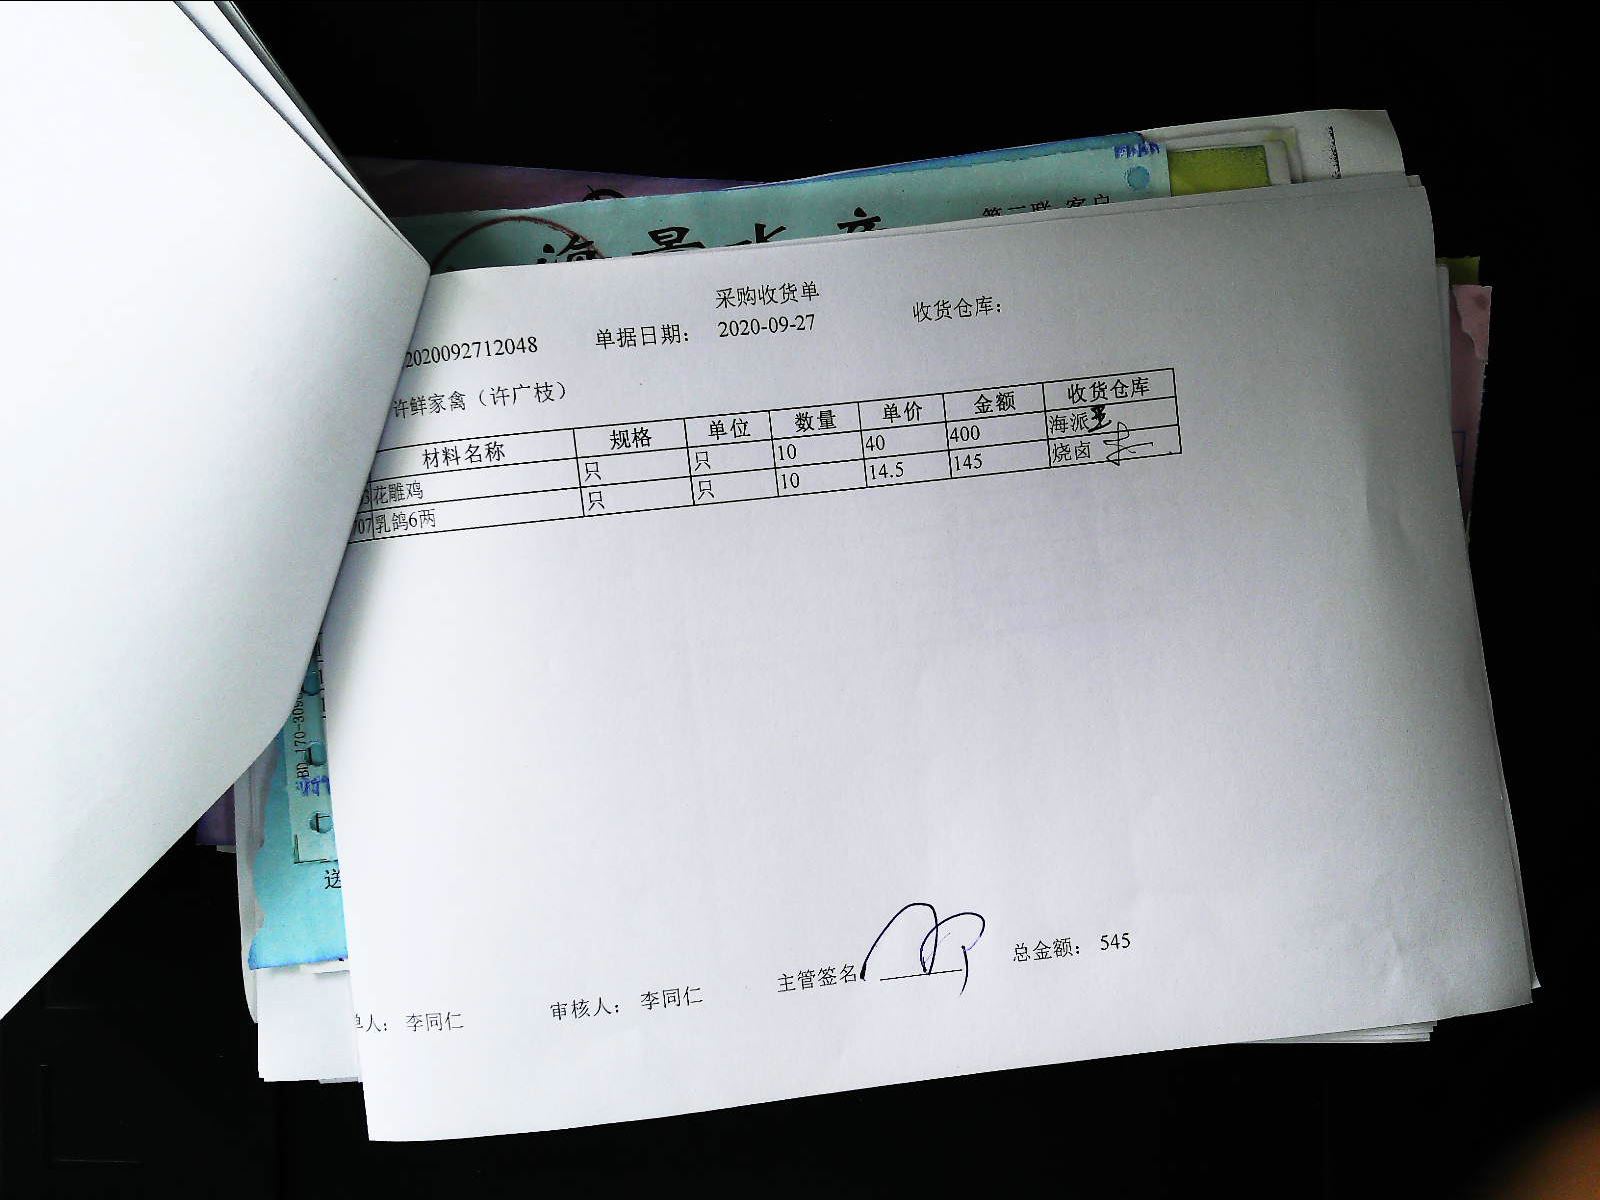 第二联 客户
海景水产
采购收货单
2020092712048 单据日期： 2020-09-27 收货仓库：
许鲜家禽（许广枝）
材料名称 规格 单位 数量 单价 金额 收货仓库
3 花雕鸡 只 只 10 40 400 海派
707 乳鸽6两 只 只 10 14.5 145 烧卤
BD-170-309
送
主管签名 总金额： 545
单人： 李同仁 审核人： 李同仁